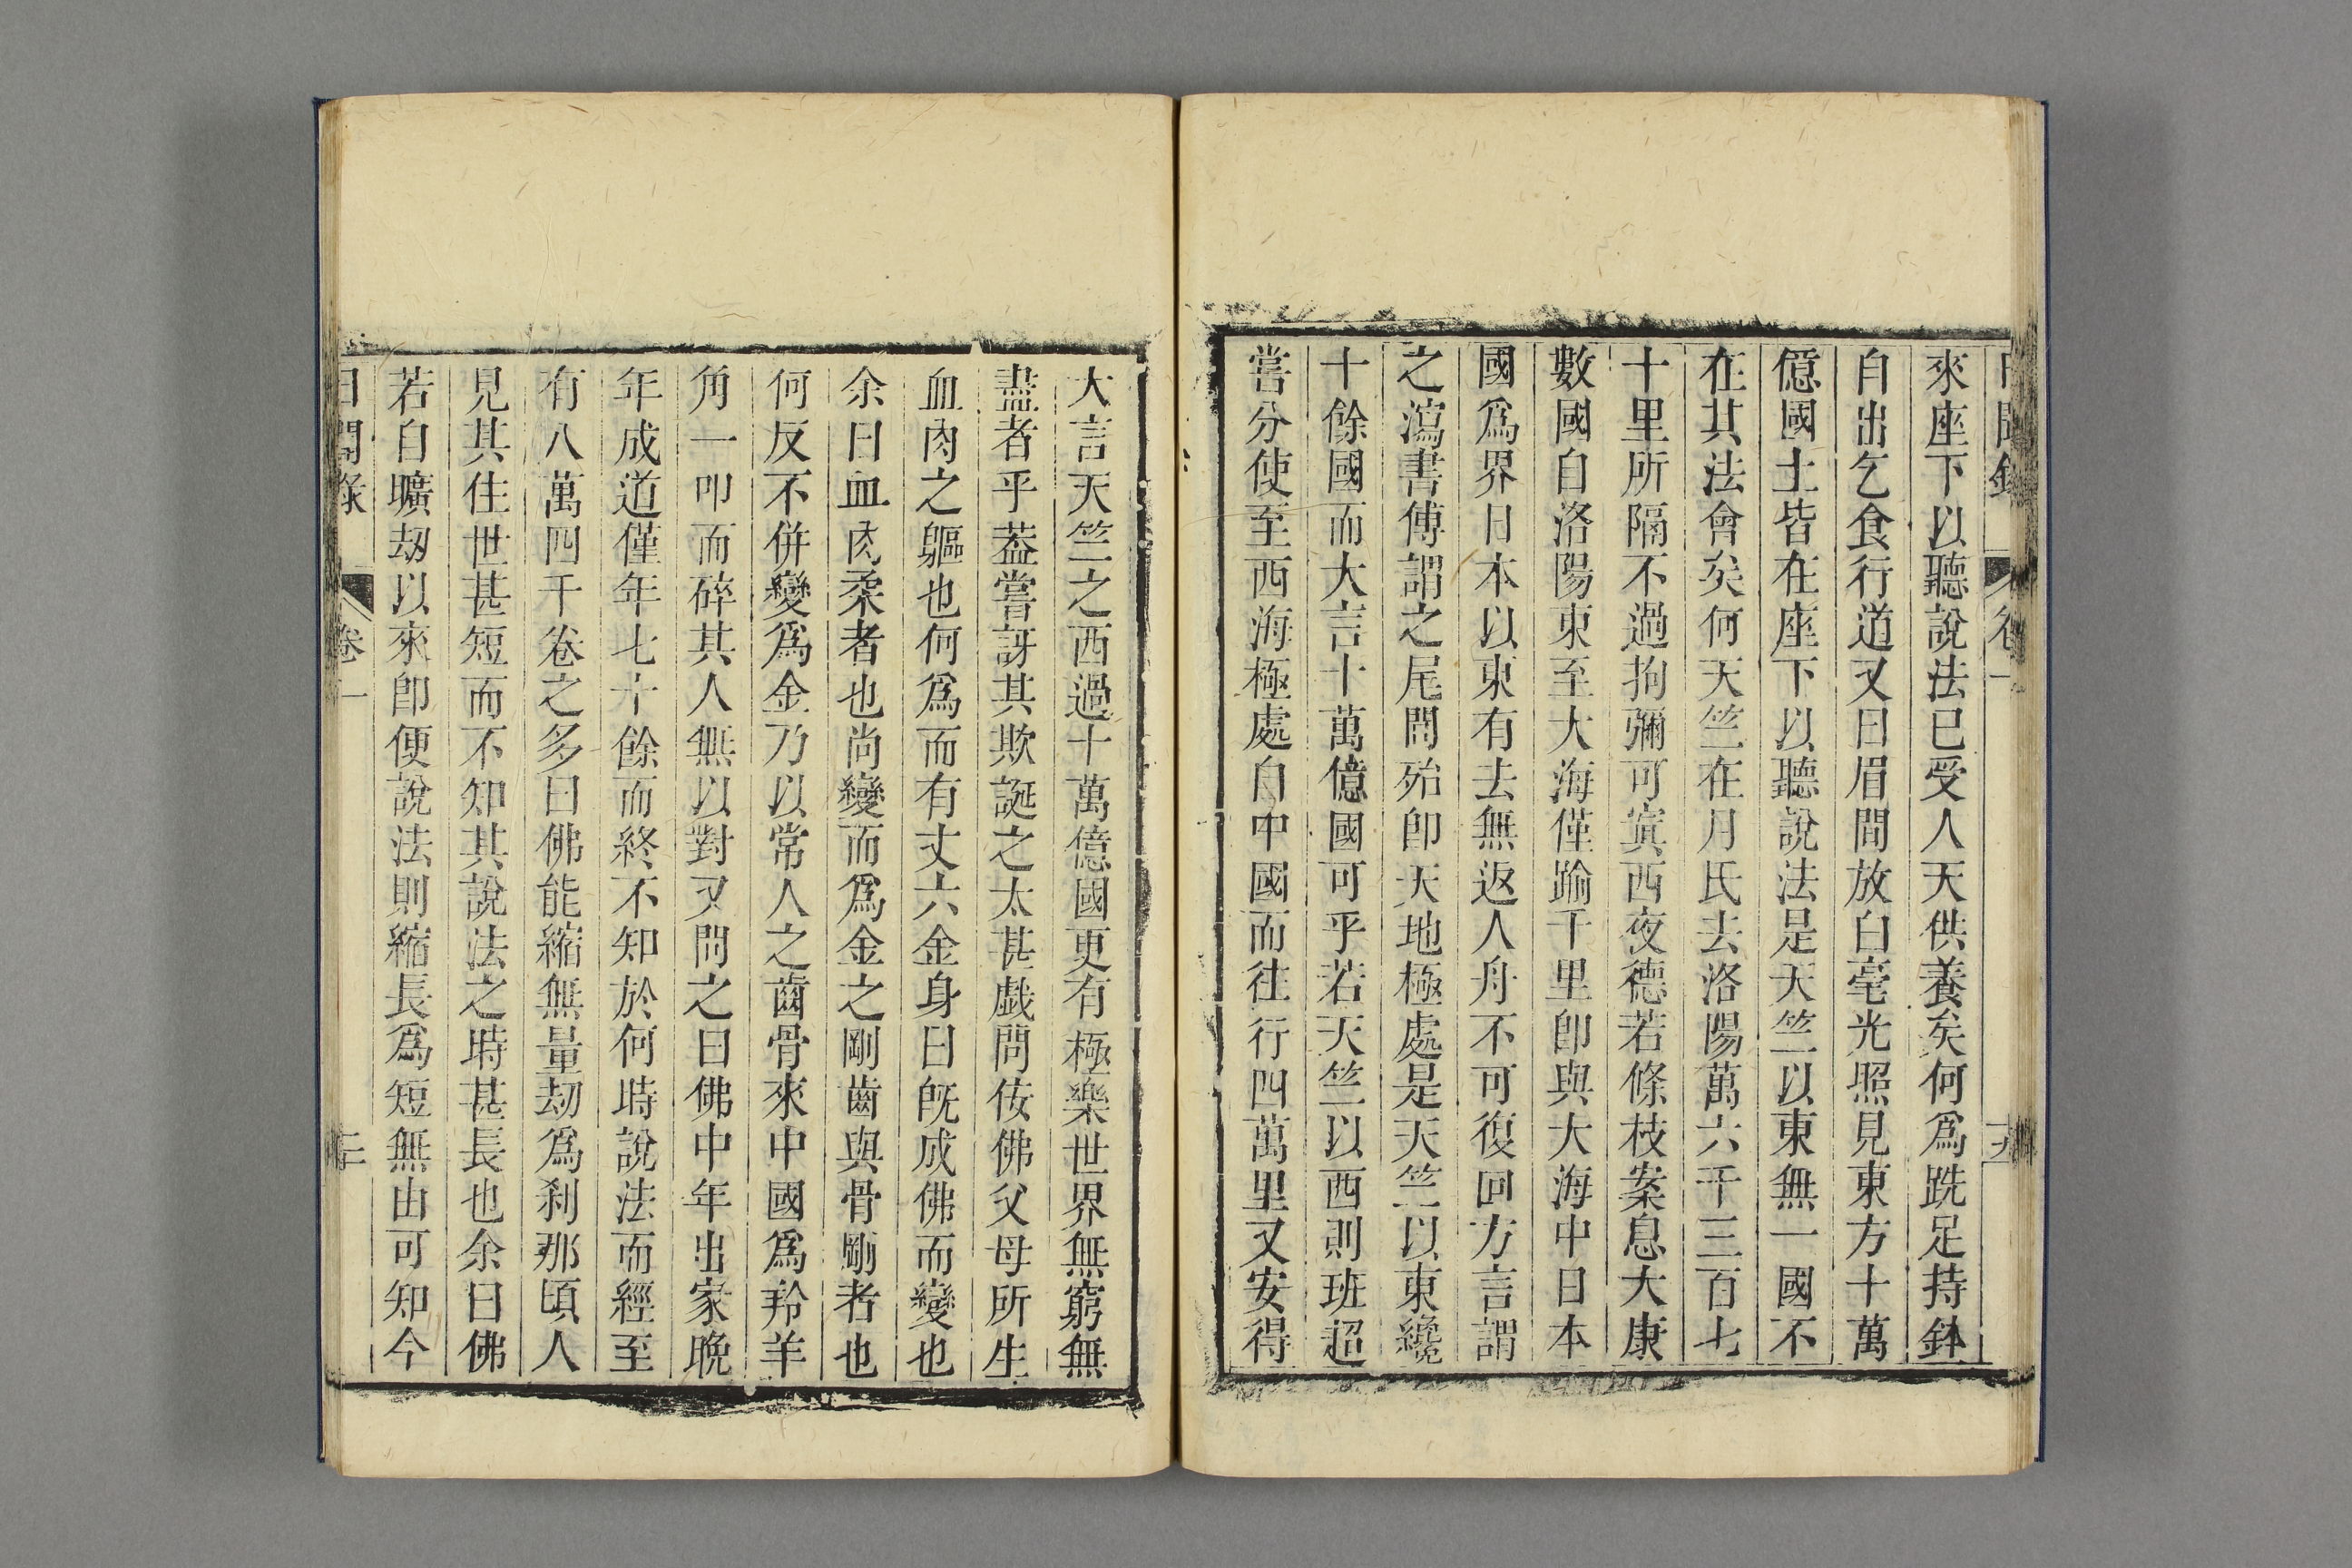 日聞錄 卷一 十九
來座下以聽說法已受人天供養矣何爲跣足持鉢
自出乞食行道又曰眉間放白毫光照見東方十萬
億國土皆在座下以聽說法是天竺以東無一國不
在其法會矣何天竺在月氏去洛陽萬六千三百七
十里所隔不過拘彌可寘西夜德若條枝案息大康
數國自洛陽東至大海僅踰千里卽與大海中日本
國爲界日本以東有去無返人舟不可復回方言謂
之瀉書傳謂之尾閭殆卽天地極處是天竺以東纔
十餘國而大言十萬億國可乎若天竺以西則班超
嘗分使至西海極處自中國而往行四萬里又安得
大言天竺之西過十萬億國更有極樂世界無窮無
盡者乎葢嘗訝其欺誕之太甚戲問佞佛父母所生
血肉之軀也何爲而有丈六金身曰旣成佛而變也
余曰血肉柔者也尚變而爲金之剛齒與骨剛者也
何反不併變爲金乃以常人之齒骨來中國爲羚羊
角一叩而碎其人無以對又問之曰佛中年出家晩
年成道僅年七十餘而終不知於何時說法而經至
有八萬四千卷之多曰佛能縮無量刼爲刹那頃人
見其住世甚短而不知其說法之時甚長也余曰佛
若自曠刼以來卽便說法則縮長爲短無由可知今
日聞錄 卷一 二十